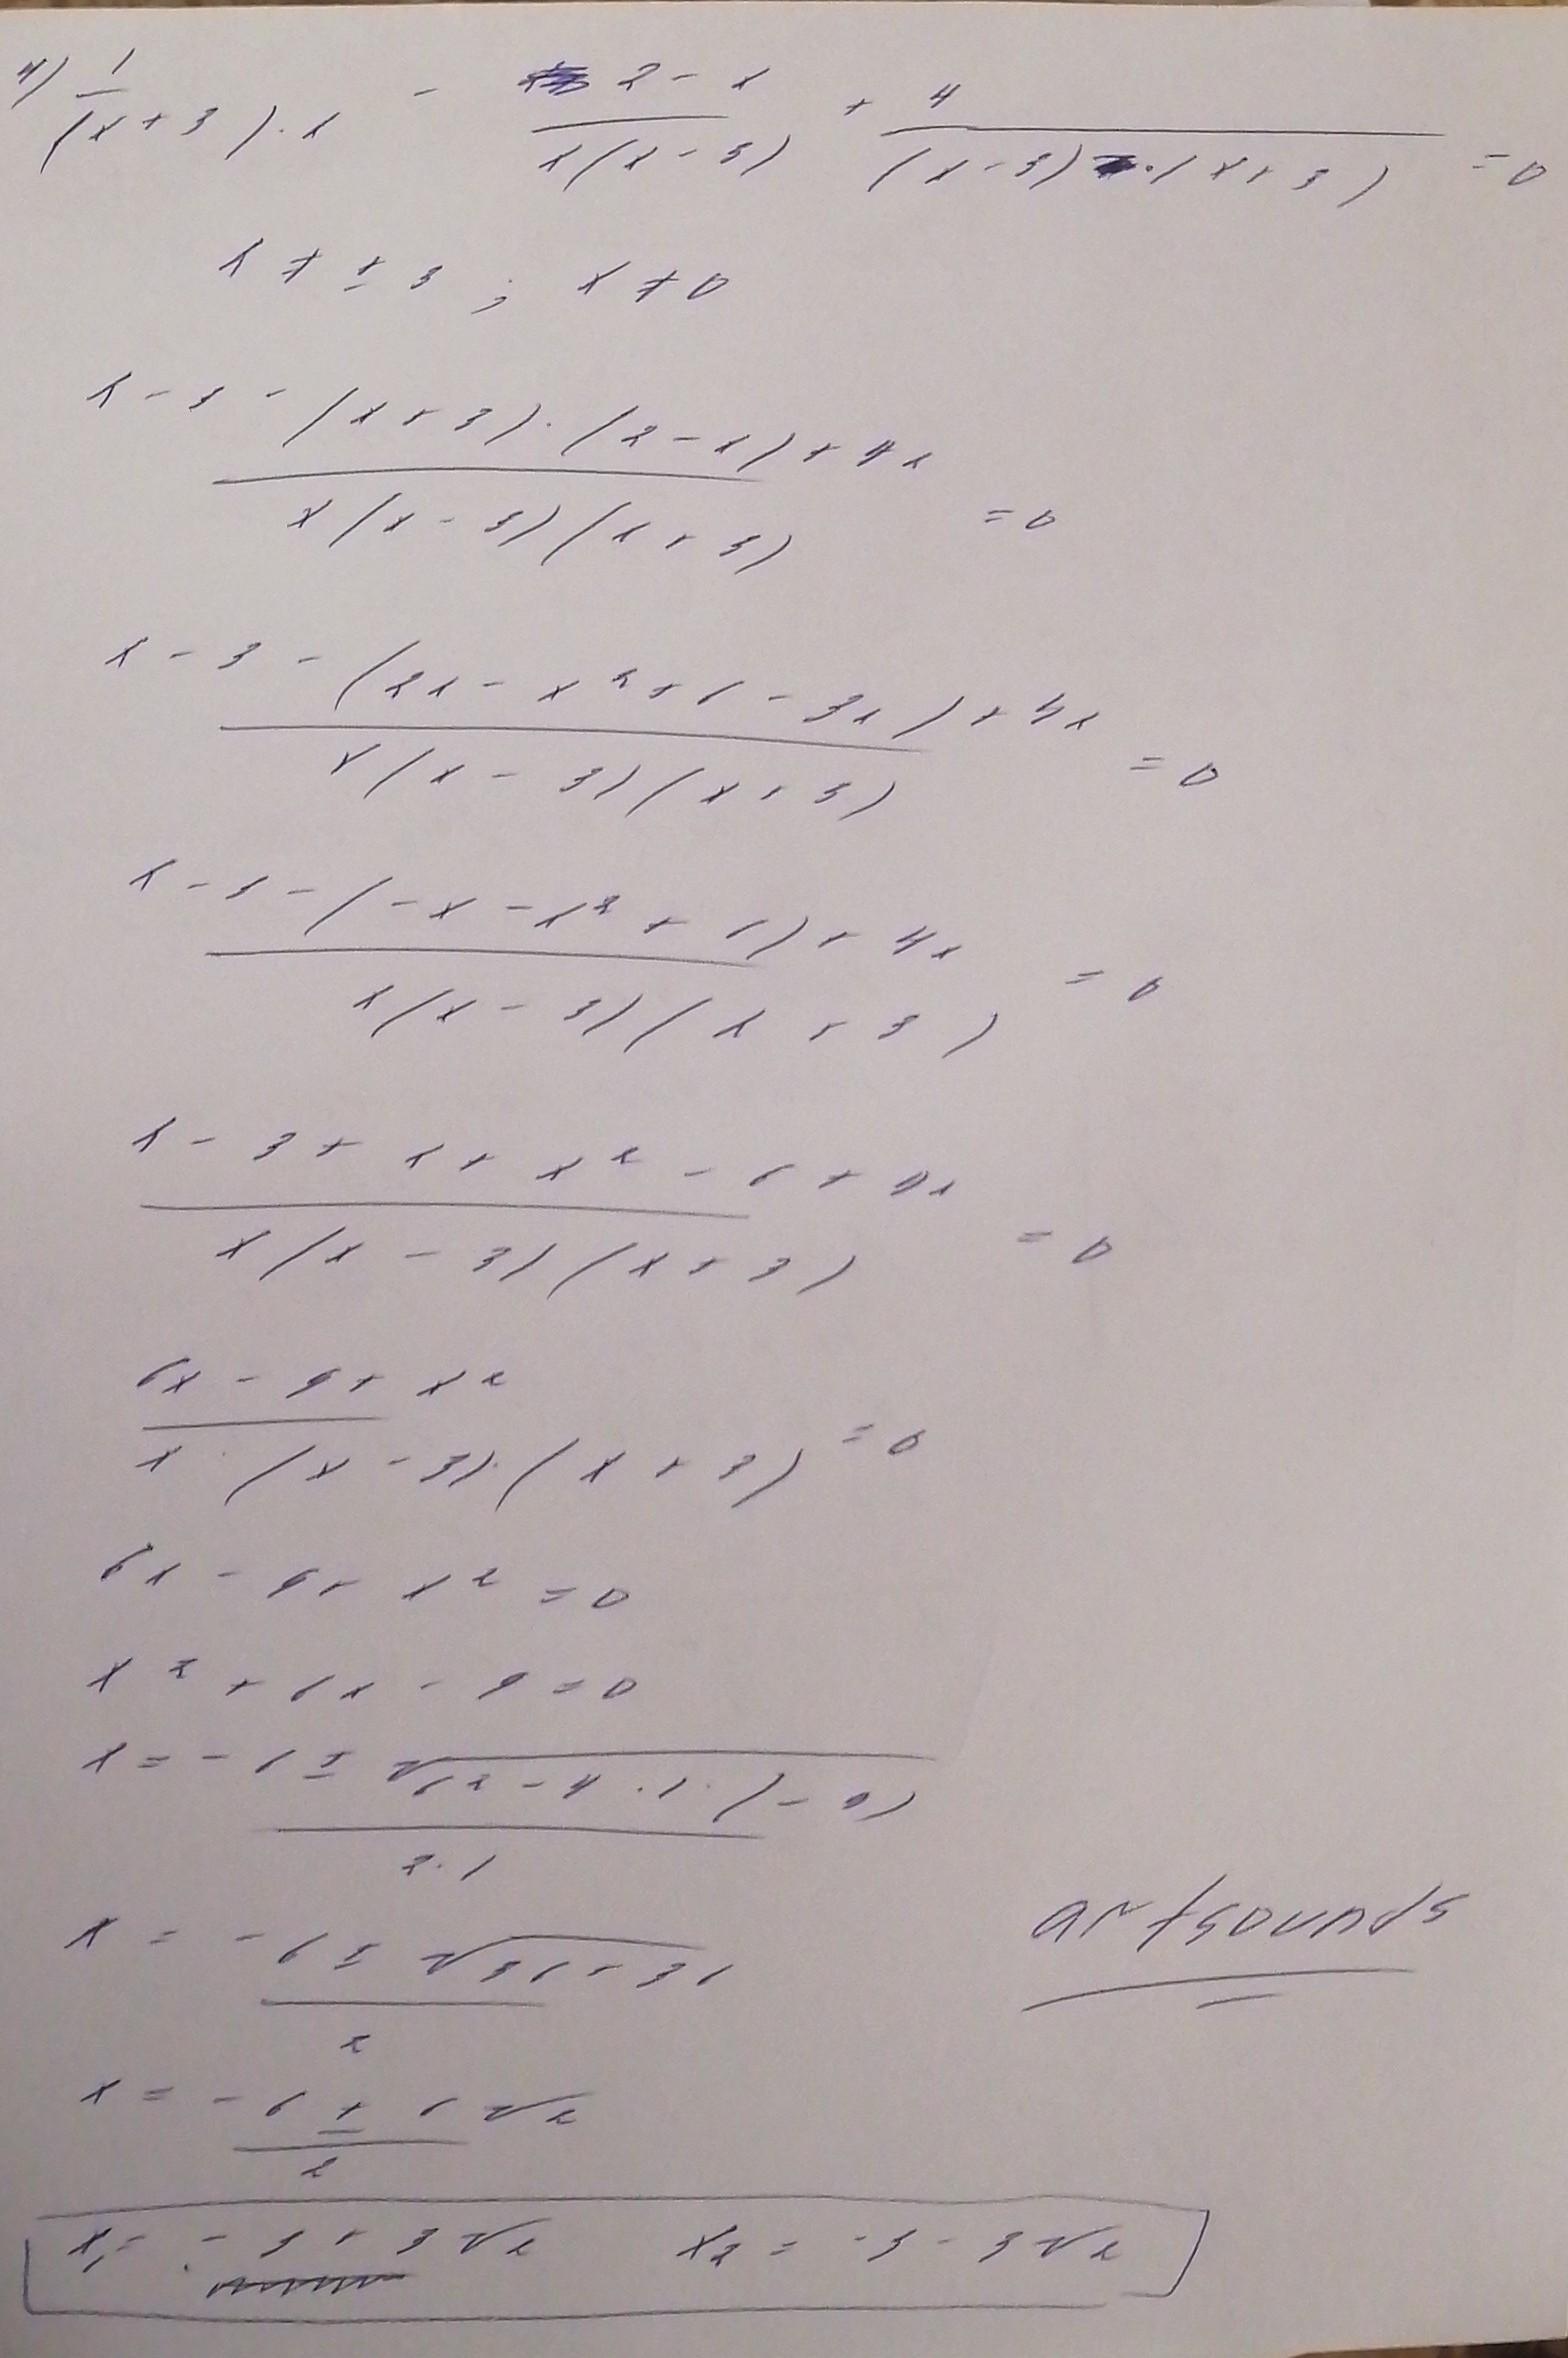 4) 1/((x+3)·x) - (2-x)/(x(x-3)) + 4/((x-3)·(x+3)) = 0
x ≠ ±3 ; x ≠ 0
(x-3-(x+3)·(2-x)+4x)/(x(x-3)(x+3)) = 0
(x-3-(2x-x²+6-3x)+4x)/(x(x-3)(x+3)) = 0
(x-3-(-x-x²+6)+4x)/(x(x-3)(x+3)) = 0
(x-3+x+x²-6+4x)/(x(x-3)(x+3)) = 0
(6x-9+x²)/(x·(x-3)·(x+3)) = 0
6x-9+x² = 0
x²+6x-9=0
x = (-6±√(6²-4·1·(-9)))/(2·1)
x = (-6±√(36+36))/2
artsounds
x = (-6±6√2)/2
x₁ = -3+3√2 x₂ = -3-3√2